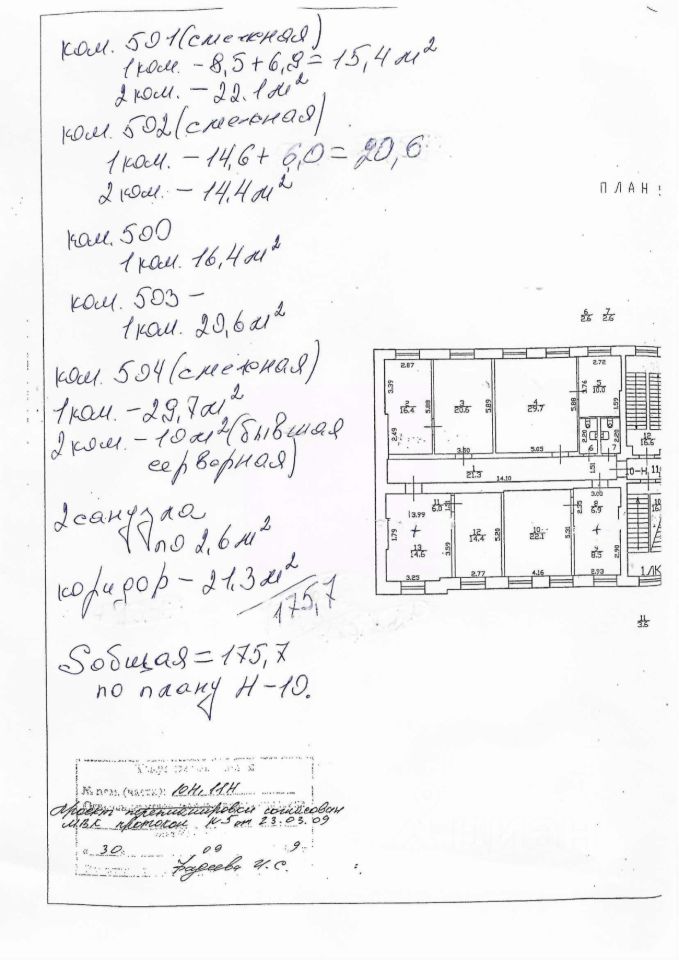 ком. 501 (смежная)
1 ком. - 8,5 + 6,9 = 15,4 м²
2 ком. - 22.1 м²
ком. 502 (смежная)
1 ком. - 14,6 + 6,0 = 20,6
2 ком. - 14.4 м²
ком. 500
1 ком. 16,4 м²
ком. 503 -
1 ком. 20,6 м²
ком. 504 (смежная)
1 ком. - 29,7 м²
2 ком. - 10 м² (бывшая
серверная)
2 санузла
по 2,6 м²
коридор - 21,3 м²
175,7
Sобщая = 175,7
по плану Н-10.
ПЛАН
6 7
2.6 2.6
2.87 2.72
3.39 2 16.4 5.88 3 20.6 5.89 4 29.7 5.88 3.76 5 10.0 1.59
2.49 3.50 5.05 2.20 6 7 2.20
12
16.6
1 21.3 14.10 1.51 10-Н 11
3.00
11 6.0 8 6.9 2.35
3.99
1.79 13 14.6 3.59 12 14.4 5.20 10 22.1 5.31 9 8.5 2.90
3.25 2.77 4.16 2.93
1/ЛК
11
3.6
№ пом. (части): 10Н, 11Н
Проект перепланировки согласован
МВК протокол №5 от 23.03.09
« 30 09 9
Фадеева И. С.